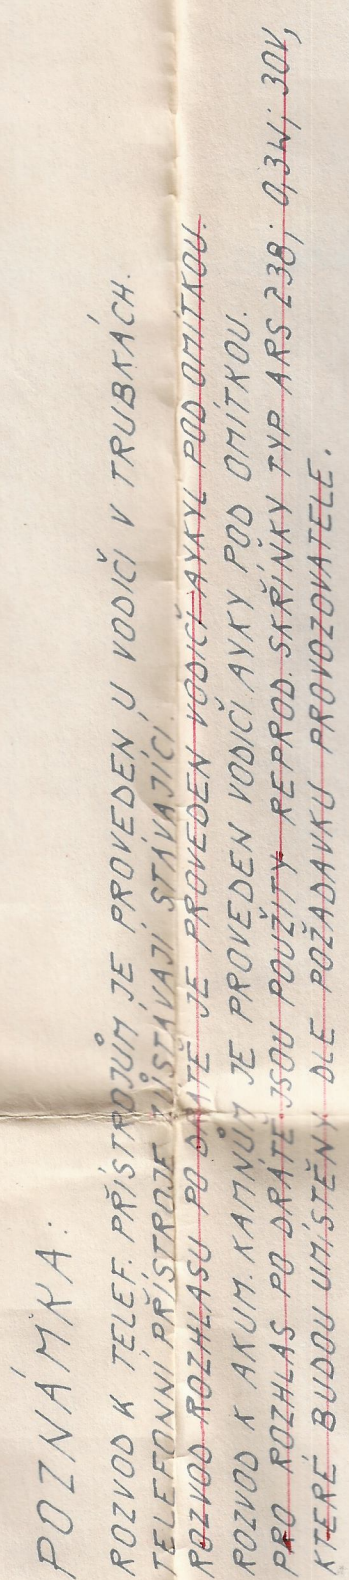 POZNÁMKA.
ROZVOD K TELEF. PŘÍSTROJŮM JE PROVEDEN U VODIČI V TRUBKÁCH.
TELEFONNÍ PŘÍSTROJE ZŮSTÁVAJÍ STÁVAJÍCÍ.
ROZVOD ROZHLASU PO DRÁTĚ JE PROVEDEN VODIČI AYKYL POD OMÍTKOU.
ROZVOD K AKUM. KAMNŮM JE PROVEDEN VODIČI AYKY POD OMÍTKOU.
PRO ROZHLAS PO DRÁTĚ JSOU POUŽITY REPROD. SKŘÍŇKY TYP ARS 238; 0,3W; 30V,
KTERÉ BUDOU UMÍSTĚNY DLE POŽADAVKU PROVOZOVATELE.